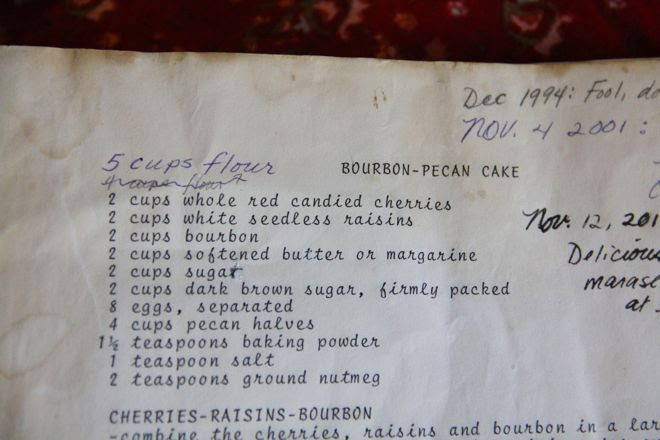 Dec 1994: Fool, do
Nov. 4 2001:
5 cups flour
BOURBON-PECAN CAKE
2 cups whole red candied cherries
2 cups white seedless raisins
Nov. 12, 201
2 cups bourbon
2 cups softened butter or margarine
Delicious
2 cups sugar
marasc
2 cups dark brown sugar, firmly packed
at
8 eggs, separated
4 cups pecan halves
1½ teaspoons baking powder
1 teaspoon salt
2 teaspoons ground nutmeg
CHERRIES-RAISINS-BOURBON
-combine the cherries, raisins and bourbon in a lar